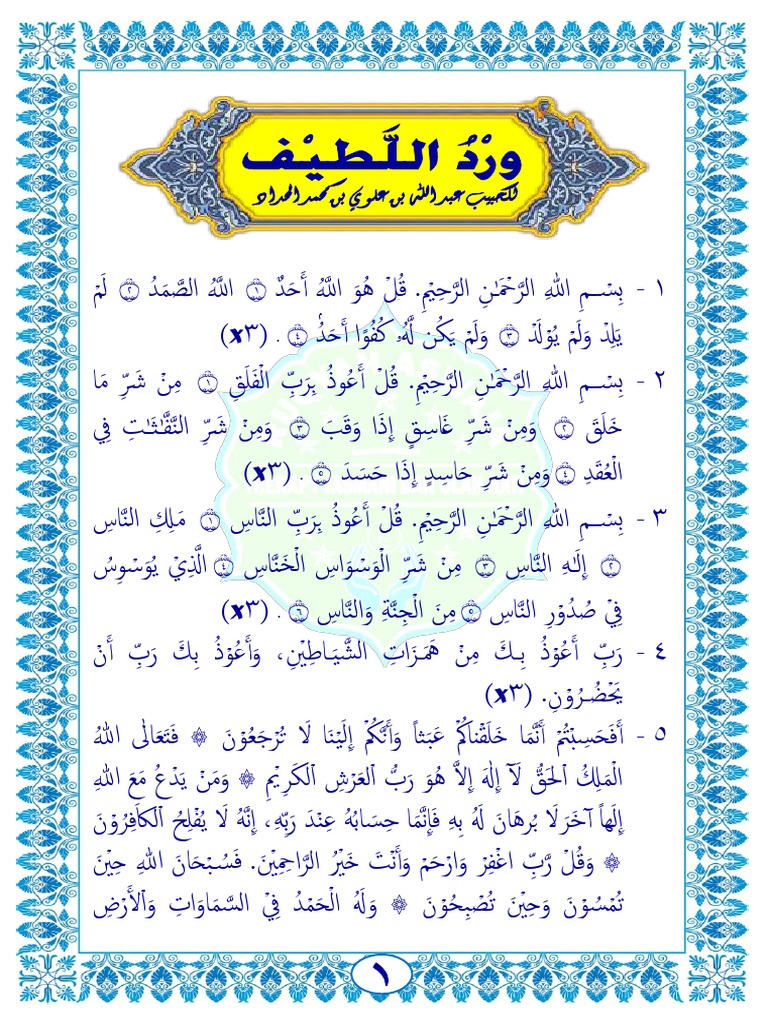 وِرْدُ اللَّطِيْف
للحبيب عبد الله بن علوي بن محمد الحداد
١ - بِسْمِ اللهِ الرَّحْمٰنِ الرَّحِيْمِ. قُلْ هُوَ اللَّهُ أَحَدٌ ۝١ اللَّهُ الصَّمَدُ ۝٢ لَمْ
يَلِدْ وَلَمْ يُوْلَدْ ۝٣ وَلَمْ يَكُن لَّهُۥ كُفُوًا أَحَدٌۢ ۝٤ . (x٣)
٢ - بِسْمِ اللهِ الرَّحْمٰنِ الرَّحِيْمِ. قُلْ أَعُوذُ بِرَبِّ الْفَلَقِ ۝١ مِنْ شَرِّ مَا
خَلَقَ ۝٢ وَمِنْ شَرِّ غَاسِقٍ إِذَا وَقَبَ ۝٣ وَمِنْ شَرِّ النَّفّٰثٰتِ فِي
الْعُقَدِ ۝٤ وَمِنْ شَرِّ حَاسِدٍ إِذَا حَسَدَ ۝٥ . (x٣)
٣ - بِسْمِ اللهِ الرَّحْمٰنِ الرَّحِيْمِ. قُلْ أَعُوذُ بِرَبِّ النَّاسِ ۝١ مَلِكِ النَّاسِ
۝٢ إِلٰهِ النَّاسِ ۝٣ مِنْ شَرِّ الْوَسْوَاسِ الْخَنَّاسِ ۝٤ الَّذِيْ يُوَسْوِسُ
فِيْ صُدُوْرِ النَّاسِ ۝٥ مِنَ الْجِنَّةِ وَالنَّاسِ ۝٦ . (x٣)
٤ - رَبِّ أَعُوْذُ بِكَ مِنْ هَمَزَاتِ الشَّيَاطِيْنِ، وَأَعُوْذُ بِكَ رَبِّ أَنْ
يَحْضُرُوْنِ. (x٣)
٥ - أَفَحَسِبْتُمْ أَنَّمَا خَلَقْنَاكُمْ عَبَثاً وَأَنَّكُمْ إِلَيْنَا لَا تُرْجَعُوْنَ ۞ فَتَعَالٰى اللهُ
الْمَلِكُ الْحَقُّ لَآ إِلٰهَ إِلاَّ هُوَ رَبُّ الْعَرْشِ الْكَرِيْمِ ۞ وَمَنْ يَدْعُ مَعَ اللهِ
إِلَهاً آخَرَ لَا بُرهَانَ لَهُ بِهِ فَإِنَّمَا حِسَابُهُ عِنْدَ رَبِّهِ، إِنَّهُ لَا يُفْلِحُ الْكَافِرُوْنَ
۞ وَقُلْ رَّبِّ اغْفِرْ وَارْحَمْ وَأَنْتَ خَيْرُ الرَّاحِمِيْنَ. فَسُبْحَانَ اللهِ حِيْنَ
تُمْسُوْنَ وَحِيْنَ تُصْبِحُوْنَ ۞ وَلَهُ الْحَمْدُ فِيْ السَّمَاوَاتِ وَالْأَرْضِ
١